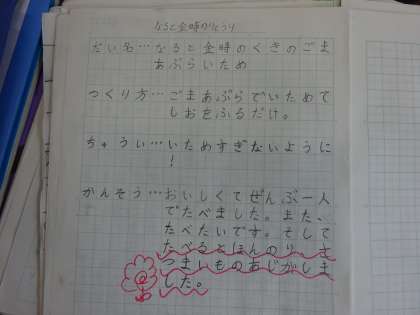 なると金時のりょうり
だい名…なると金時のくきのごま
あぶらいため
つくり方…ごまあぶらでいためて
しおをふるだけ。
ちゅうい…いためすぎないように
!
かんそう…おいしくてぜんぶ一人
でたべました。また、
たべたいです。そして
たべるとほんのりさ
つまいものあじがしま
した。